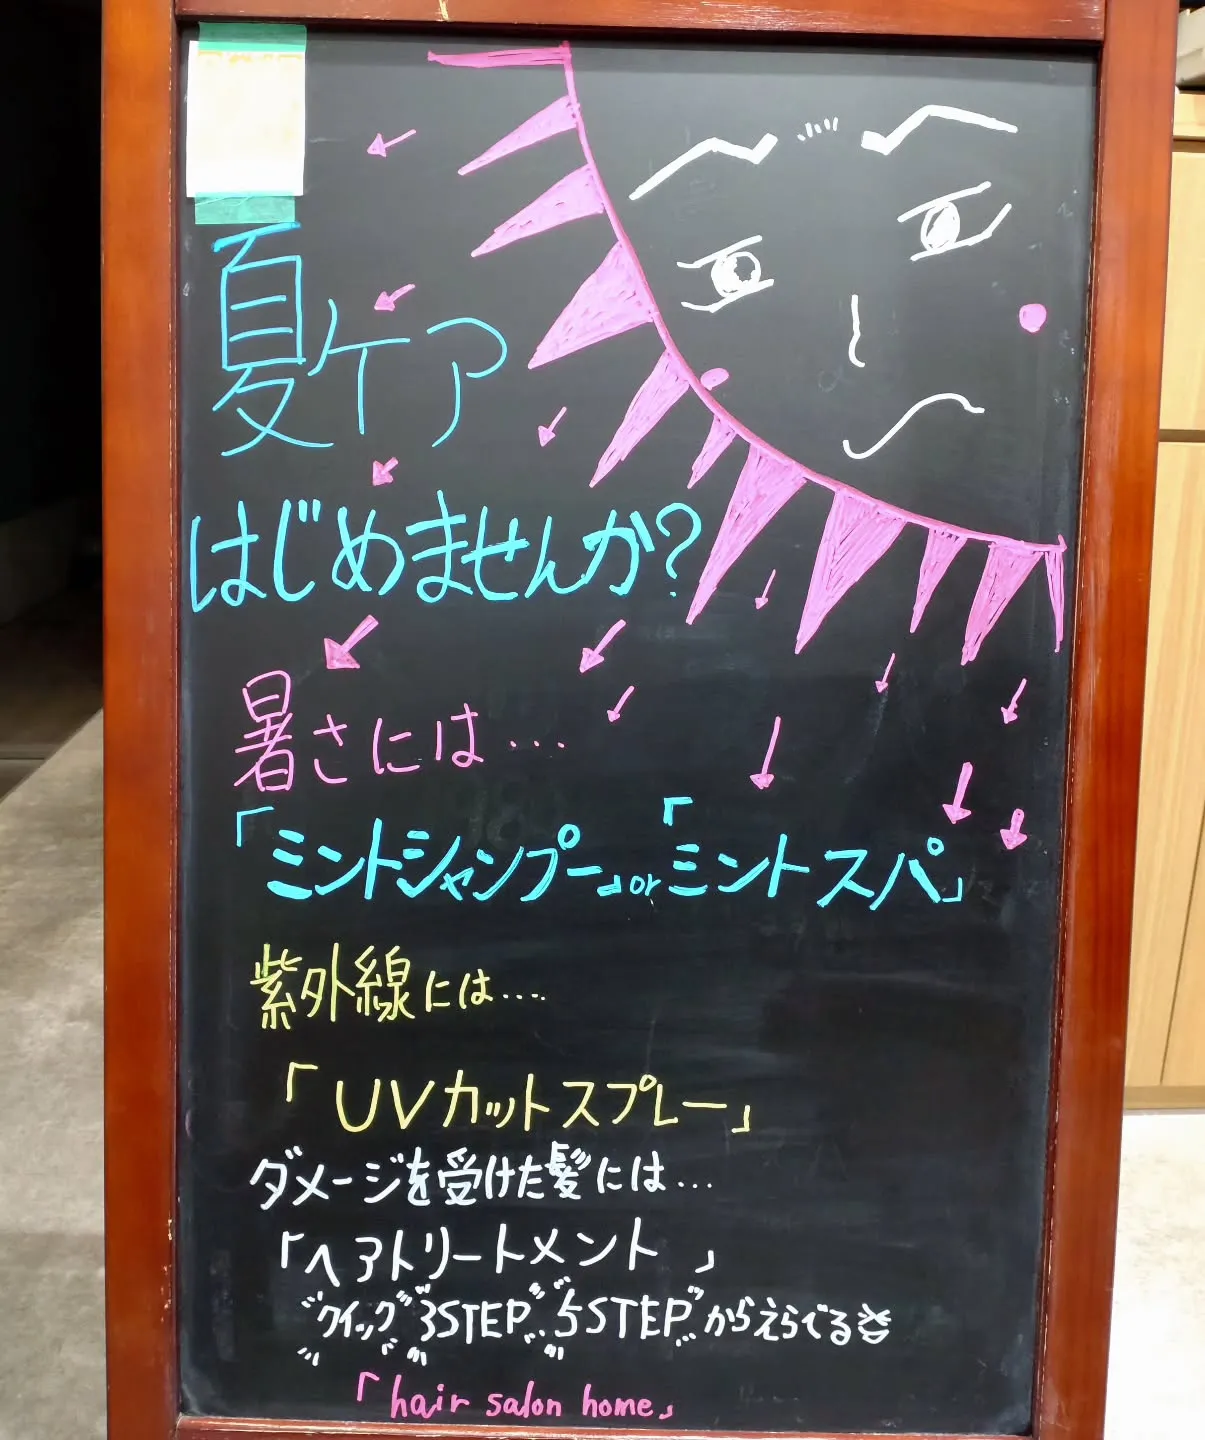 夏ケア
はじめませんか?
暑さには…
「ミントシャンプー」or「ミントスパ」
紫外線には....
「UVカットスプレー」
ダメージを受けた髪には...
「ヘアトリートメント 」
クイック 3STEP 5STEP からえらべる
「hair salon home」